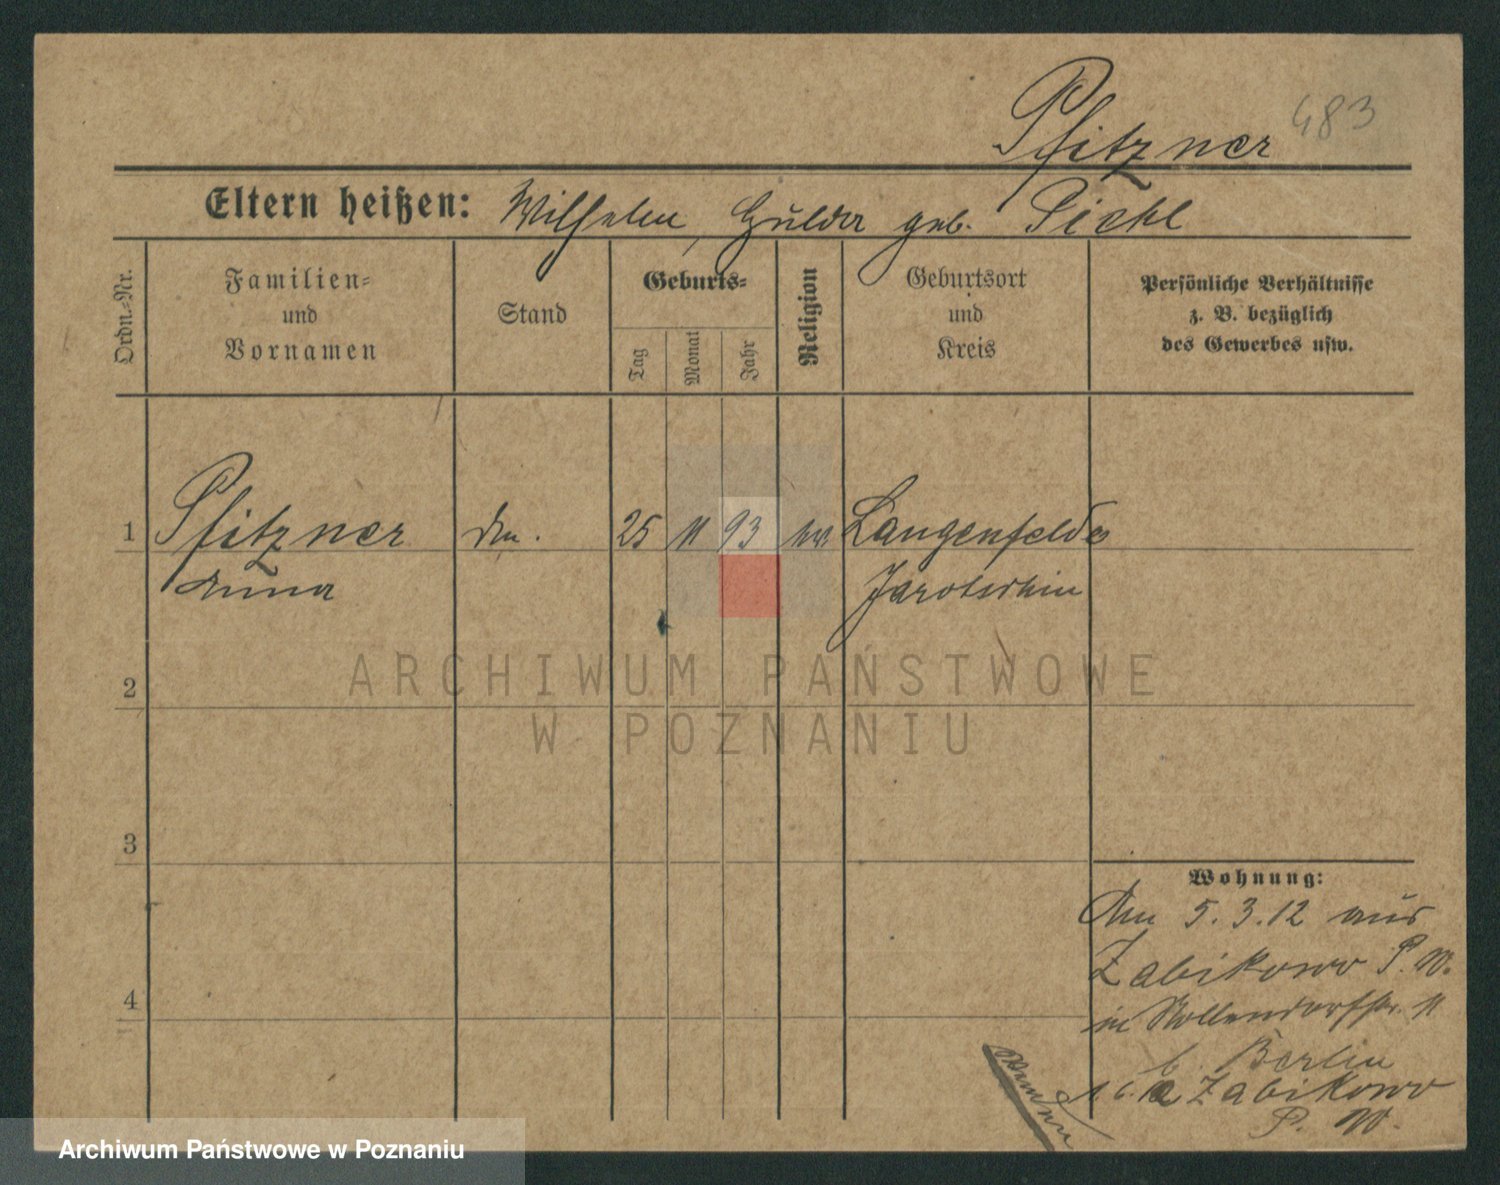 Pfitzner 483
Eltern heißen: Wilhelm, Hulda geb. Pichl
Ordn.-Nr.
Familien-
und
Vornamen
Stand
Geburts-
Tag
Monat
Jahr
Religion
Geburtsort
und
Kreis
Persönliche Verhältnisse
z. B. bezüglich
des Gewerbes usw.
1 Pfitzner 25 11 93 Langenfelde
Anna Jarotschin
ARCHIWUM PAŃSTWOWE
W POZNANIU
2
3
4
Wohnung:
Am 5.3.12 aus
Zabikowo P. W.
in Nollendorfstr. 11
b. Berlin
Zabikowo
P. W.
wenden
Archiwum Państwowe w Poznaniu